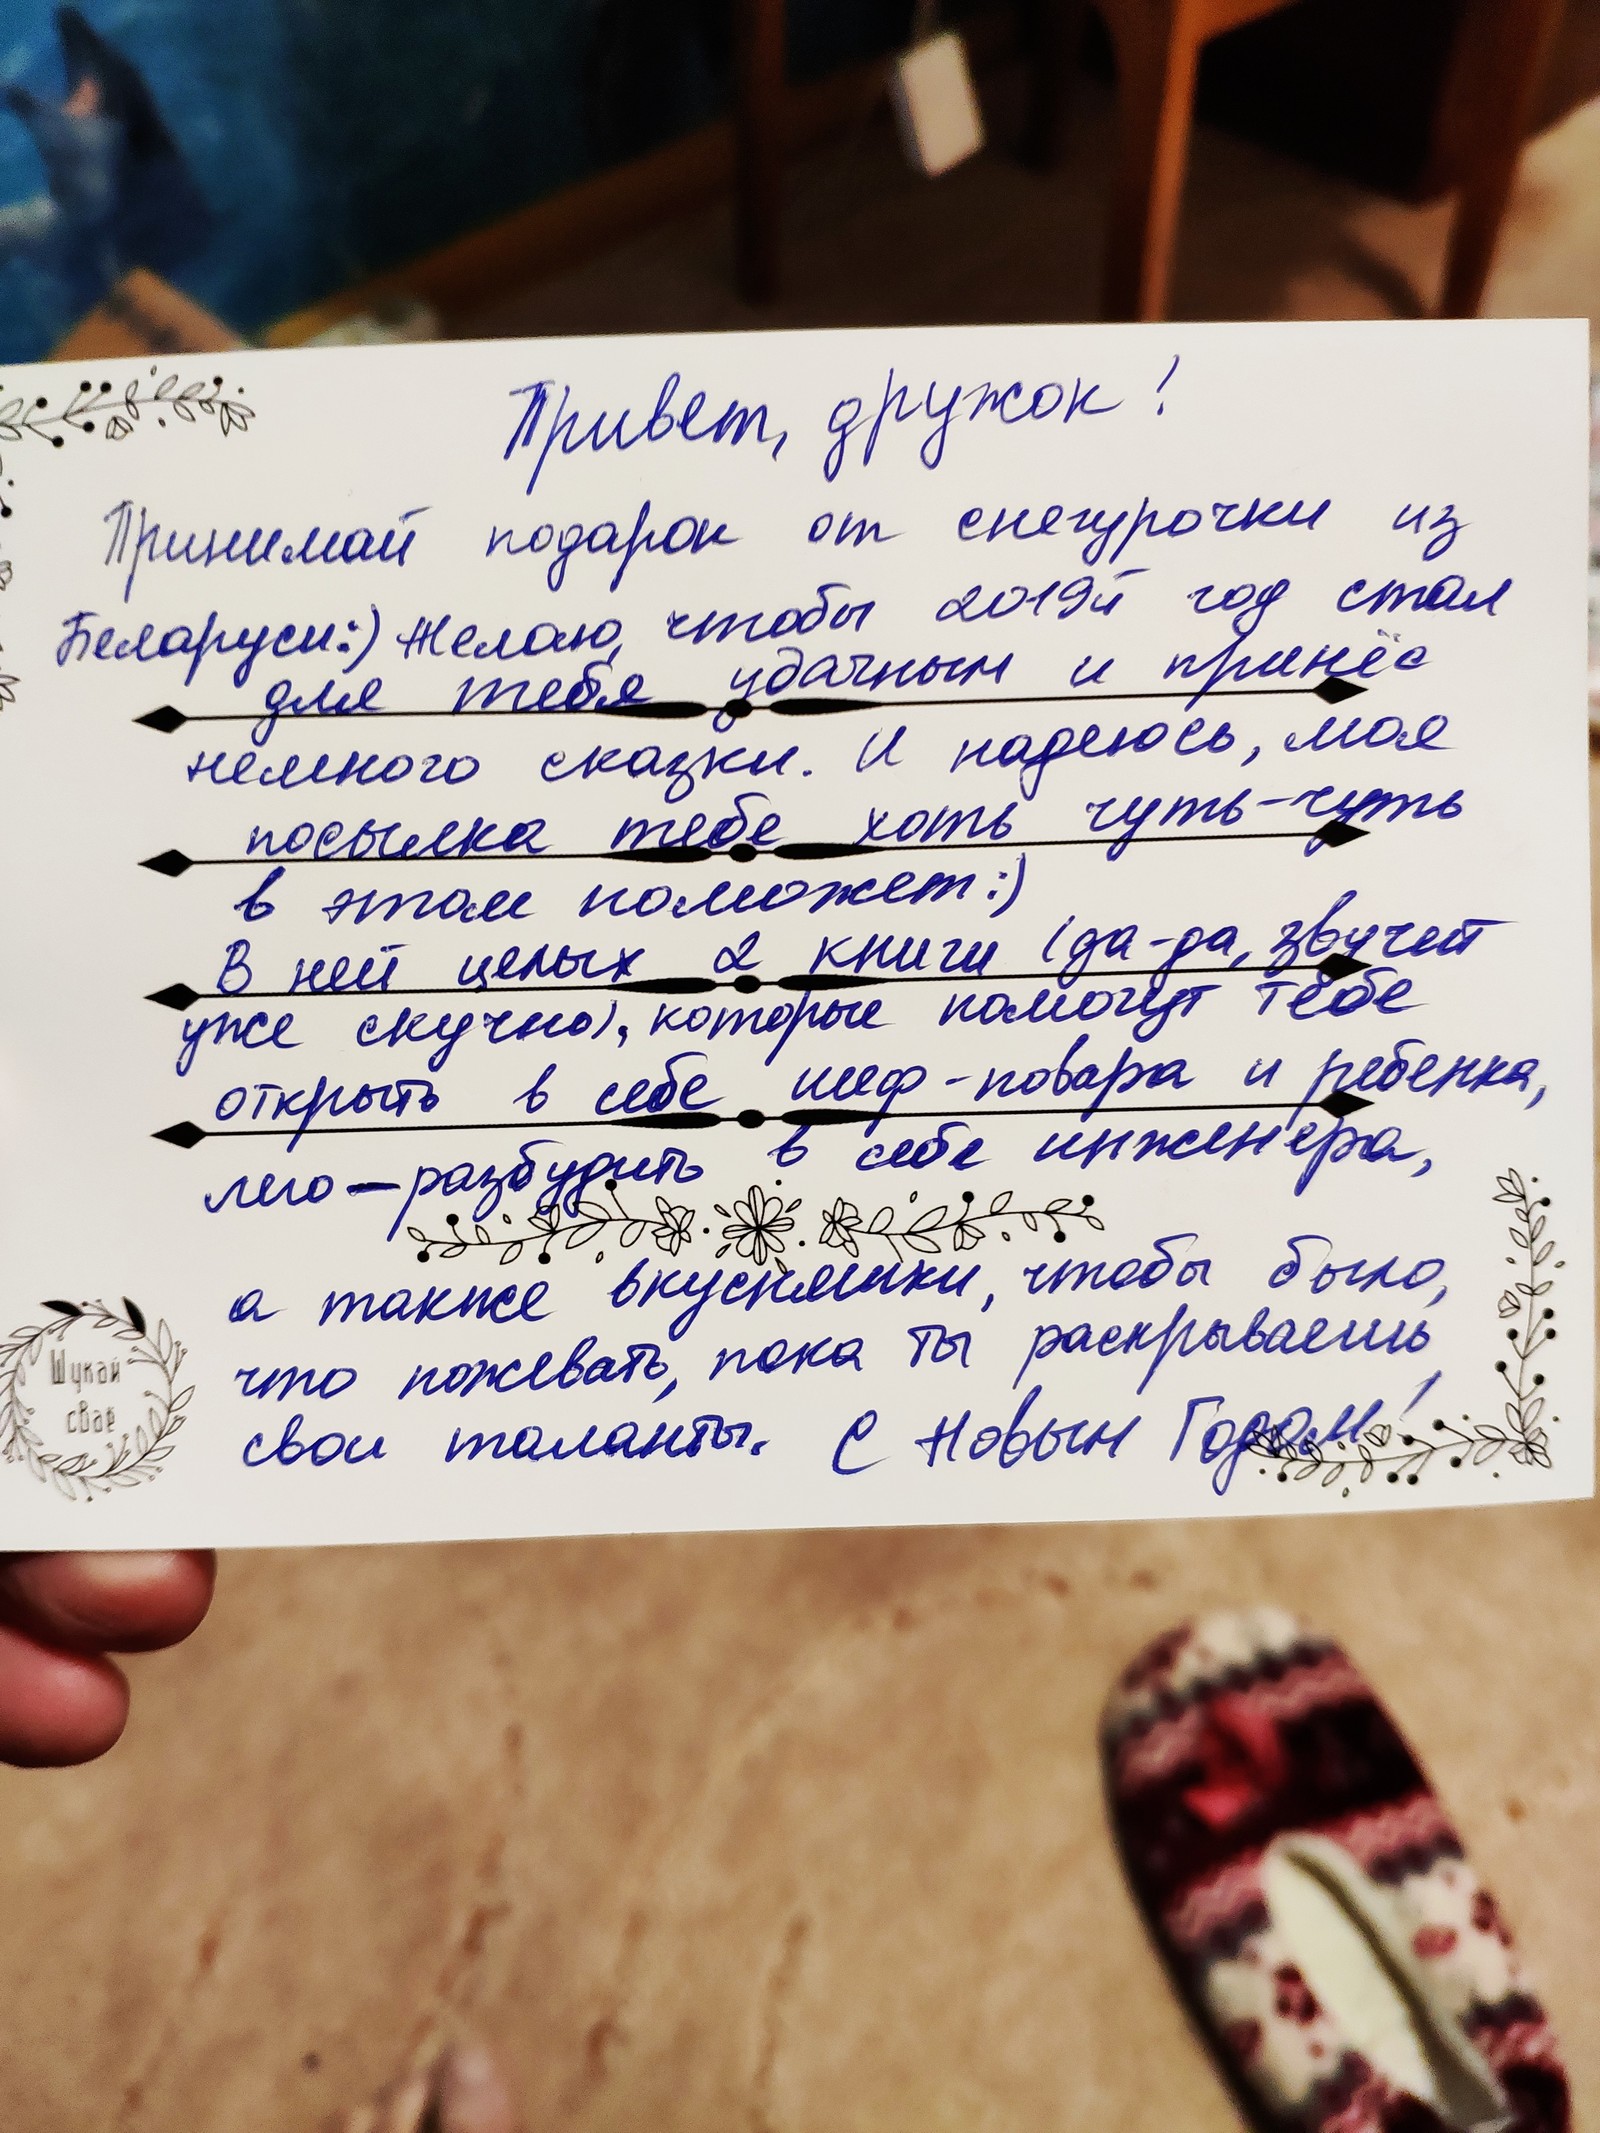 Привет, дружок!
Принимай подарок от снегурочки из
Беларуси:) Желаю, чтобы 2019й год стал
для тебя удачным и принёс
немного сказки. И надеюсь, моя
посылка тебе хоть чуть-чуть
в этом поможет:)
В ней целых 2 книги (да-да, звучит
уже скучно), которые помогут тебе
открыть в себе шеф-повара и ребенка,
лего—разбудить в себе инженера,
а также вкусняшки, чтобы было,
что пожевать, пока ты раскрываешь
свои таланты. С Новым Годом!
Шукай
сваё